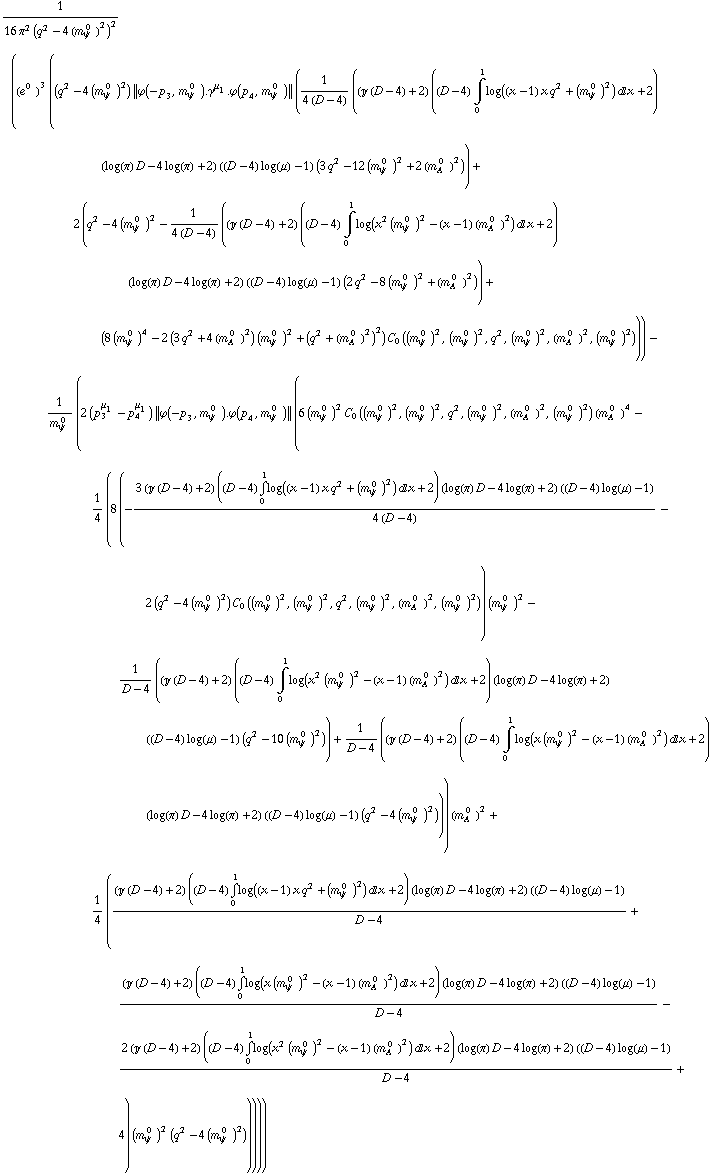 1 / (16 π² (q² − 4 (m_ψ^0)²)²)
((e^0)³ ((q² − 4 (m_ψ^0)²) ‖φ(−p₃, m_ψ^0).γ^μ₁.φ(p₄, m_ψ^0)‖ (1/(4 (D−4)) ((γ (D−4)+2) ((D−4) ∫₀¹ log((x−1) x q² + (m_ψ^0)²) ⅆx + 2)
(log(π) D − 4 log(π) + 2) ((D−4) log(μ) − 1) (3 q² − 12 (m_ψ^0)² + 2 (m_A^0)²)) +
2 (q² − 4 (m_ψ^0)² − 1/(4 (D−4)) ((γ (D−4)+2) ((D−4) ∫₀¹ log(x² (m_ψ^0)² − (x−1) (m_A^0)²) ⅆx + 2)
(log(π) D − 4 log(π) + 2) ((D−4) log(μ) − 1) (2 q² − 8 (m_ψ^0)² + (m_A^0)²)) +
(8 (m_ψ^0)⁴ − 2 (3 q² + 4 (m_A^0)²) (m_ψ^0)² + (q² + (m_A^0)²)²) C₀((m_ψ^0)², (m_ψ^0)², q², (m_ψ^0)², (m_A^0)², (m_ψ^0)²))) −
1/m_ψ^0 (2 (p₃^μ₁ − p₄^μ₁) ‖φ(−p₃, m_ψ^0).φ(p₄, m_ψ^0)‖ (6 (m_ψ^0)² C₀((m_ψ^0)², (m_ψ^0)², q², (m_ψ^0)², (m_A^0)², (m_ψ^0)²) (m_A^0)⁴ −
1/4 (8 (− 3 (γ (D−4)+2) ((D−4) ∫₀¹ log((x−1) x q² + (m_ψ^0)²) ⅆx + 2) (log(π) D − 4 log(π) + 2) ((D−4) log(μ) − 1) / (4 (D−4)) −
2 (q² − 4 (m_ψ^0)²) C₀((m_ψ^0)², (m_ψ^0)², q², (m_ψ^0)², (m_A^0)², (m_ψ^0)²)) (m_ψ^0)² −
1/(D−4) ((γ (D−4)+2) ((D−4) ∫₀¹ log(x² (m_ψ^0)² − (x−1) (m_A^0)²) ⅆx + 2) (log(π) D − 4 log(π) + 2)
((D−4) log(μ) − 1) (q² − 10 (m_ψ^0)²)) + 1/(D−4) ((γ (D−4)+2) ((D−4) ∫₀¹ log(x (m_ψ^0)² − (x−1) (m_A^0)²) ⅆx + 2)
(log(π) D − 4 log(π) + 2) ((D−4) log(μ) − 1) (q² − 4 (m_ψ^0)²))) (m_A^0)² +
1/4 ((γ (D−4)+2) ((D−4) ∫₀¹ log((x−1) x q² + (m_ψ^0)²) ⅆx + 2) (log(π) D − 4 log(π) + 2) ((D−4) log(μ) − 1) / (D−4) +
(γ (D−4)+2) ((D−4) ∫₀¹ log(x (m_ψ^0)² − (x−1) (m_A^0)²) ⅆx + 2) (log(π) D − 4 log(π) + 2) ((D−4) log(μ) − 1) / (D−4) −
2 (γ (D−4)+2) ((D−4) ∫₀¹ log(x² (m_ψ^0)² − (x−1) (m_A^0)²) ⅆx + 2) (log(π) D − 4 log(π) + 2) ((D−4) log(μ) − 1) / (D−4) +
4) (m_ψ^0)² (q² − 4 (m_ψ^0)²))))))